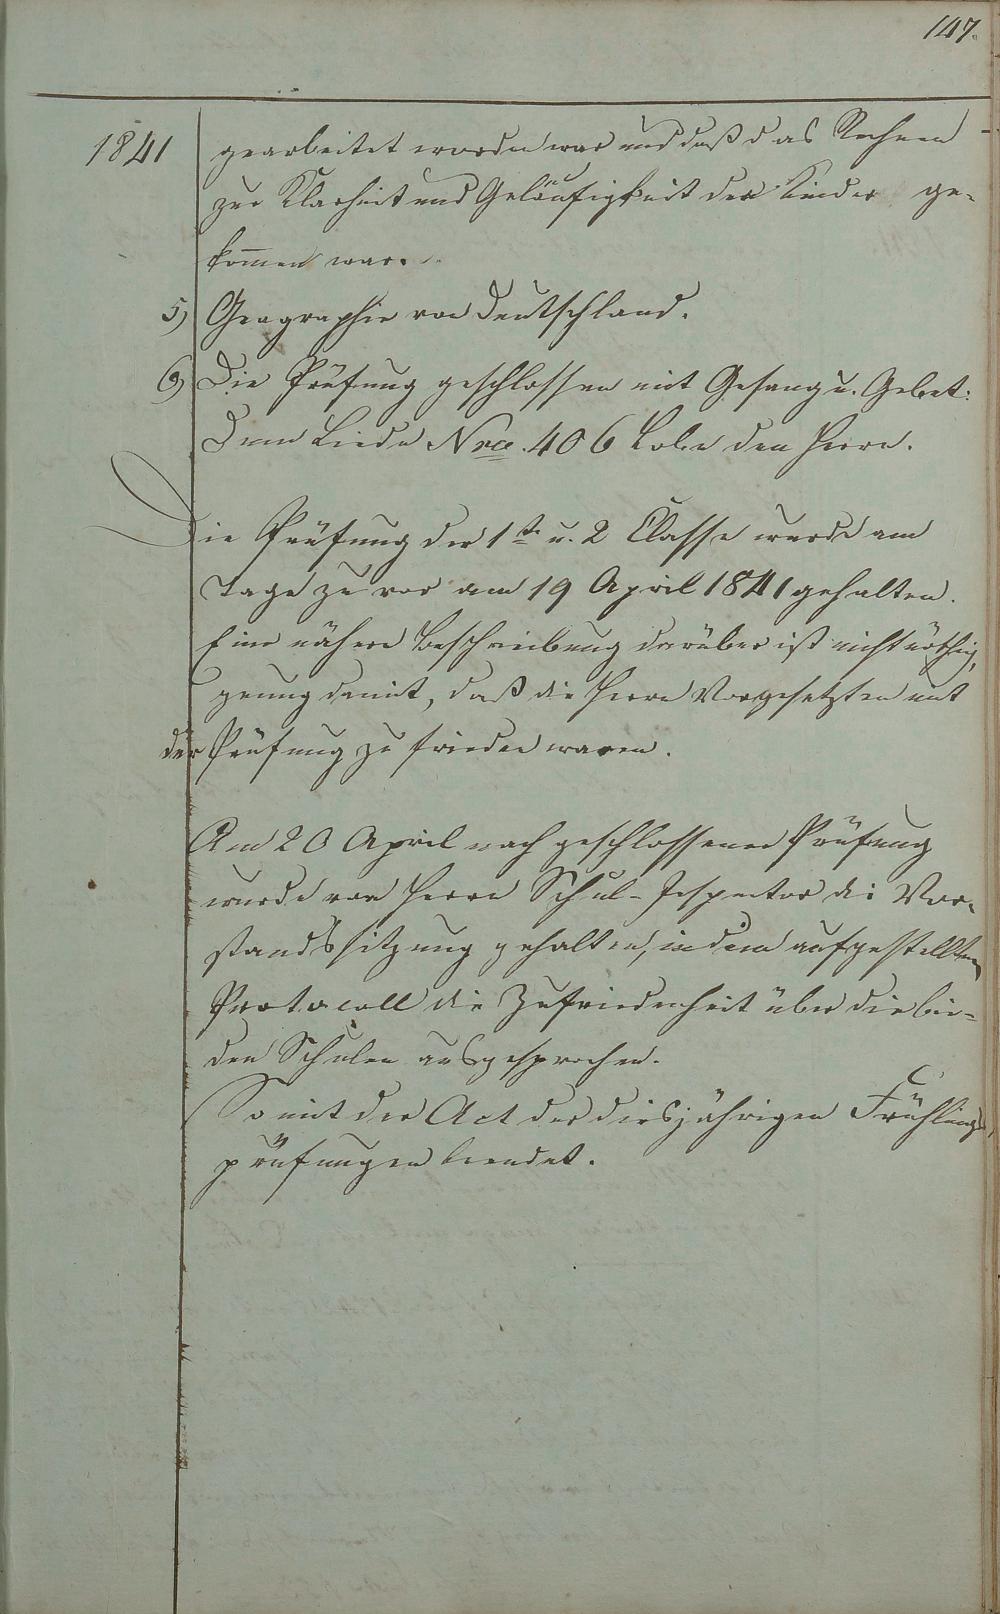 147.
1841
gearbeitet worden war und daß das Rechnen
zur Klarheit und Geläufigkeit der Kinder ge-
kom̅en war.
5) Geographie von Deutschland.
6) Die Prüfung geschlossen mit Gesang u. Gebet.
Dem Liede Nro. 406 Lobe den Herrn.
Die Prüfung der 1te u. 2 Classe wurde am
Tage zu vor am 19 April 1841 gehalten.
Eine nähere Beschreibung darüber ist nicht nöthig,
genug damit, daß die Herrn Vorgesetzten mit
der Prüfung zu frieden waren.
Am 20 April nach geschlossener Prüfung
wurde von Herrn Schul-Inspector die Vor-
standssitzung gehalten, in dem aufgestellten
Protocoll die Zufriedenheit über die bei-
den Schulen ausgesprochen.
Somit der Act der diesjährigen Frühlings,
prüfungen beendet.